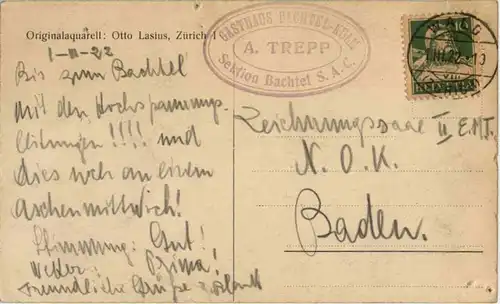 Originalaquarell: Otto Lasius, Zürich 1
1-III-22
GASTHAUS BACHTEL-KULM
A. TREPP
Sektion Bachtel S. A. C.
Bis zum Bachtel
mit den Hochspannungs-
leitungen!!!! und
dies noch an einem
Aschenmittwoch!
Stimmung: Gut!
Wetter: Prima!
Freundliche Grüße
Zeichnungssaal II E.M.J.
N. O. K.
Baden.
HELVETIA